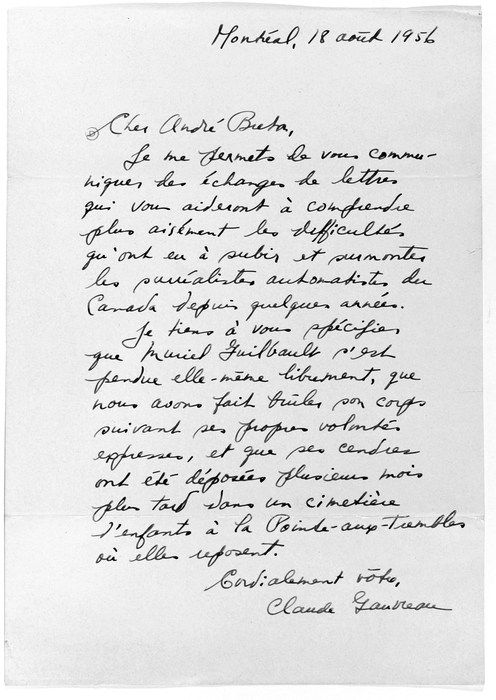 Montréal, 18 août 1956
Cher André Breton,
Je me permets de vous commu-
niquer des échanges de lettres
qui vous aideront à comprendre
plus aisément les difficultés
qu'ont eu à subir et surmonter
les surréalistes automatistes du
Canada depuis quelques années.
Je tiens à vous spécifier
que Muriel Guilbault s'est
pendue elle-même librement, que
nous avons fait brûler son corps
suivant ses propres volontés
expresses, et que ses cendres
ont été déposées plusieurs mois
plus tard dans un cimetière
d'enfants à la Pointe-aux-Trembles
où elles reposent.
Cordialement vôtre,
Claude Gauvreau